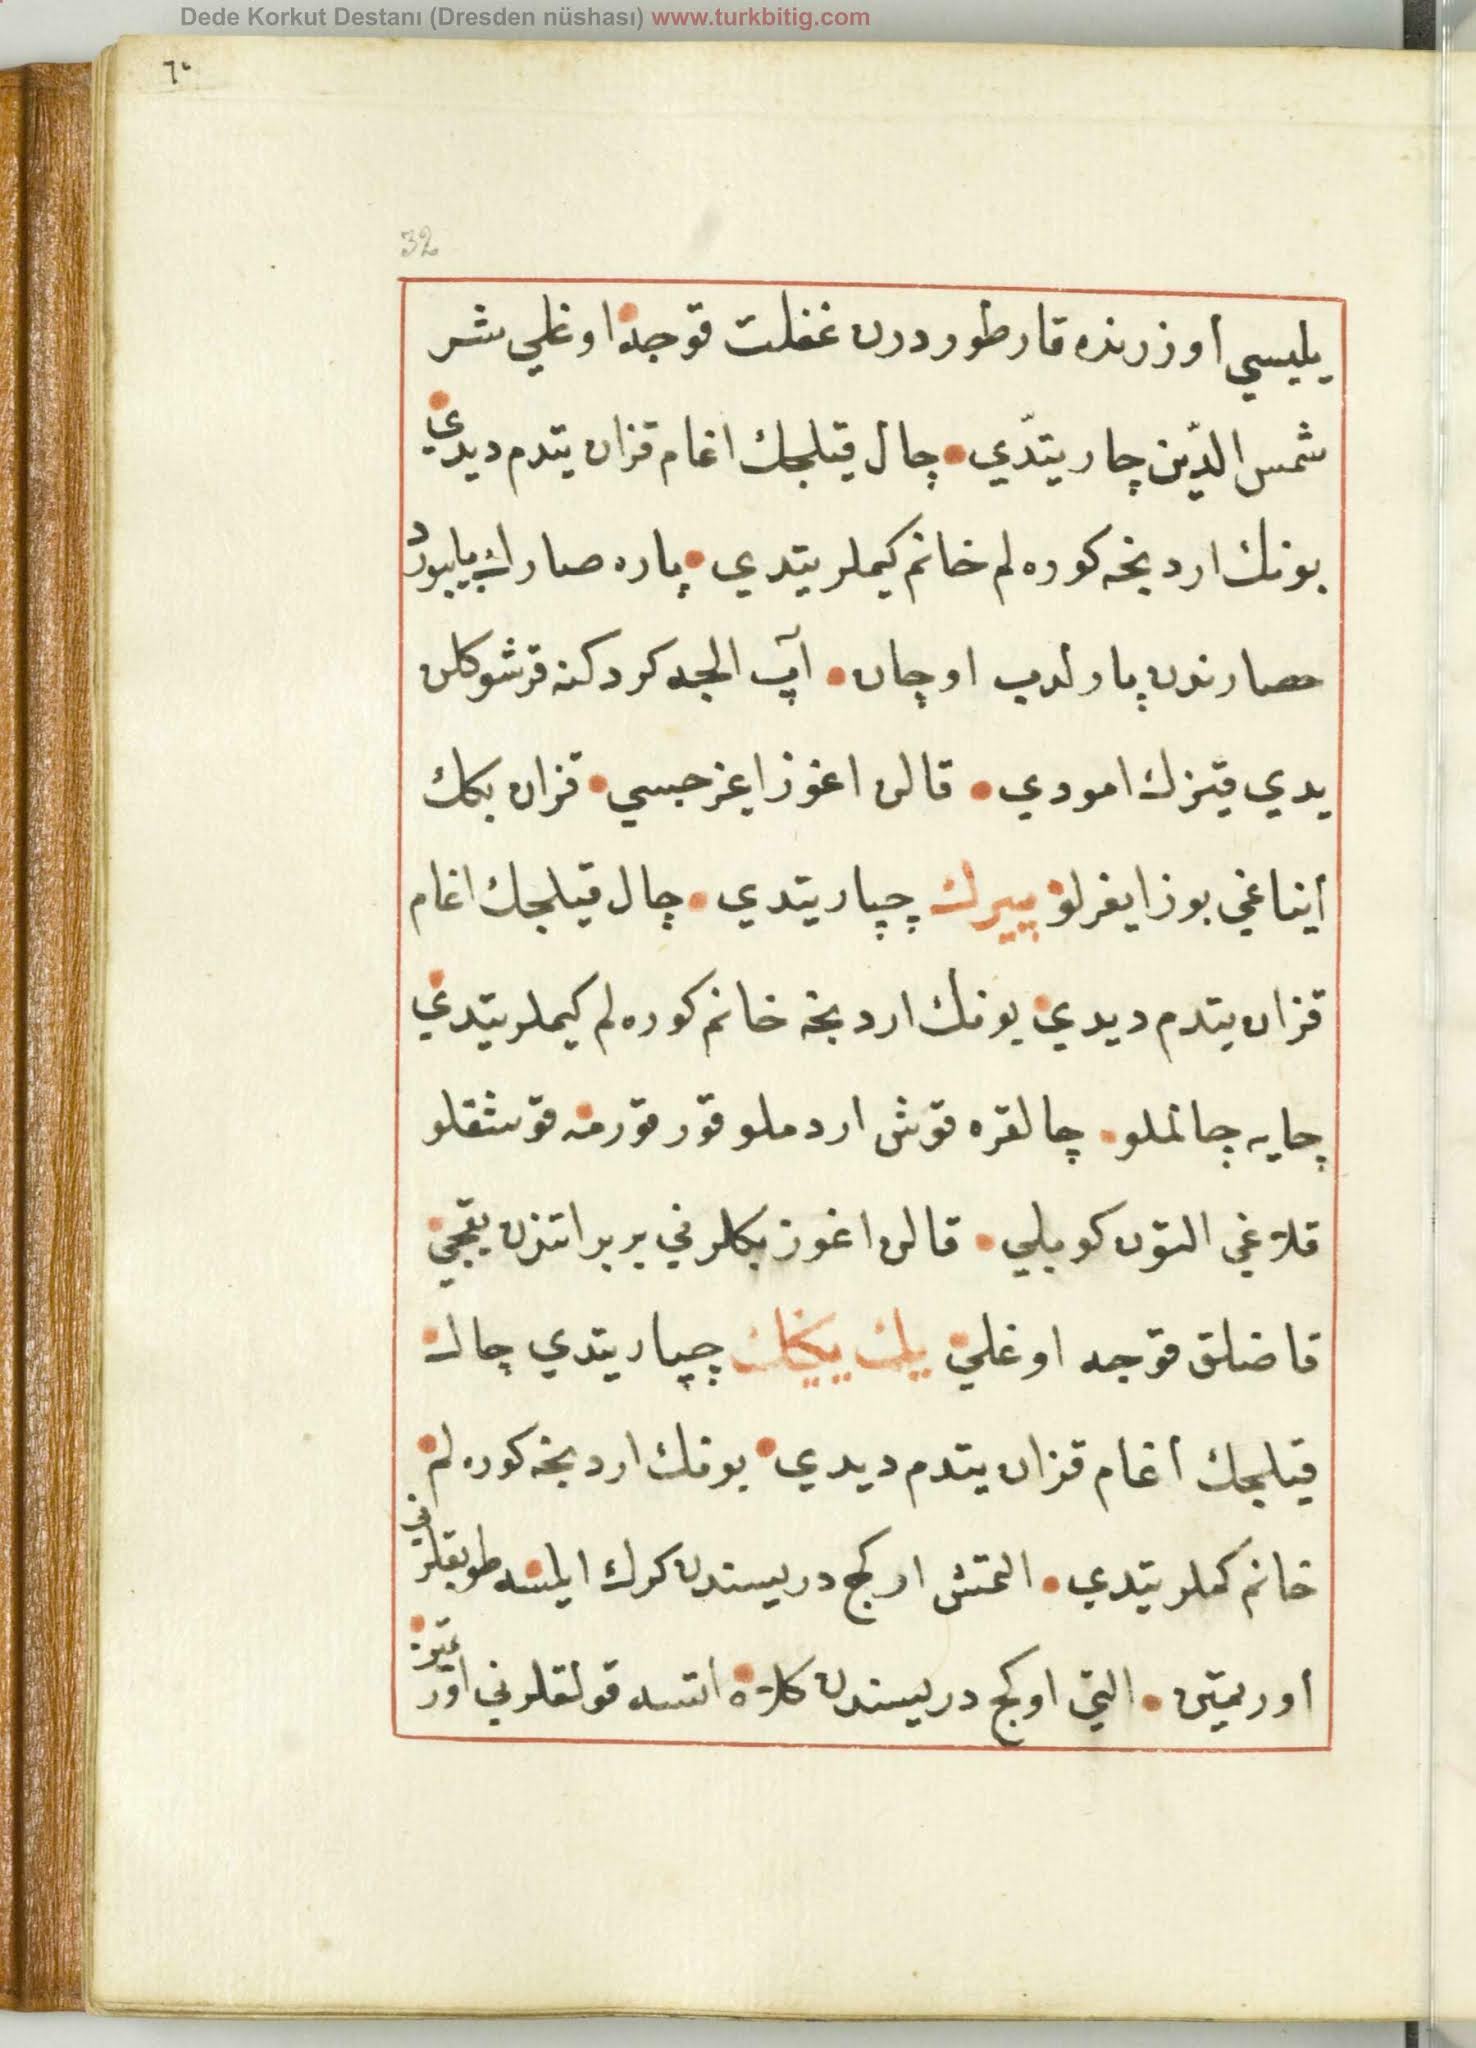 Dede Korkut Destanı (Dresden nüshası) www.turkbitig.com
٦٠
32
يليسي اوزرنده قار طوردرن غفلت قوجه اوغلي شر
شمس الدّين چار يتدّي چال قيلجك اغام قزان يتدم ديدي
بونك اردنجه كوره لم خانم كيملر يتدي پاره صارك بايبورد
حصارندن پارلدب اوچان آپ الجه كردكنه قرشو كلن
يدي قيزك امودي قالن اغوز ايغزجسي قزان بكك
ايناغي بوز ايغرلو بيرك چپار يتدي چال قيلجك اغام
قزان يتدم ديدي بونك اردنجه خانم كوره لم كيملر يتدي
چايه چالملو چالقره قوش اردملو قور قورمه قوشقلو
قلاغي التون كوپلي قالن اغوز بكلرني بر بر اتندن يقجي
قاضلق قوجه اوغلي يك يكنك چپار يتدي چال
قيلجك اغام قزان يتدم ديدي بونك اردنجه كوره لم
خانم كملر يتدي التمتش اركج دريسندن كرك ايلسه طوبقلرني
اورتميين التي اوكج دريسندن كلاه اتسه قولقلرني اورتميين